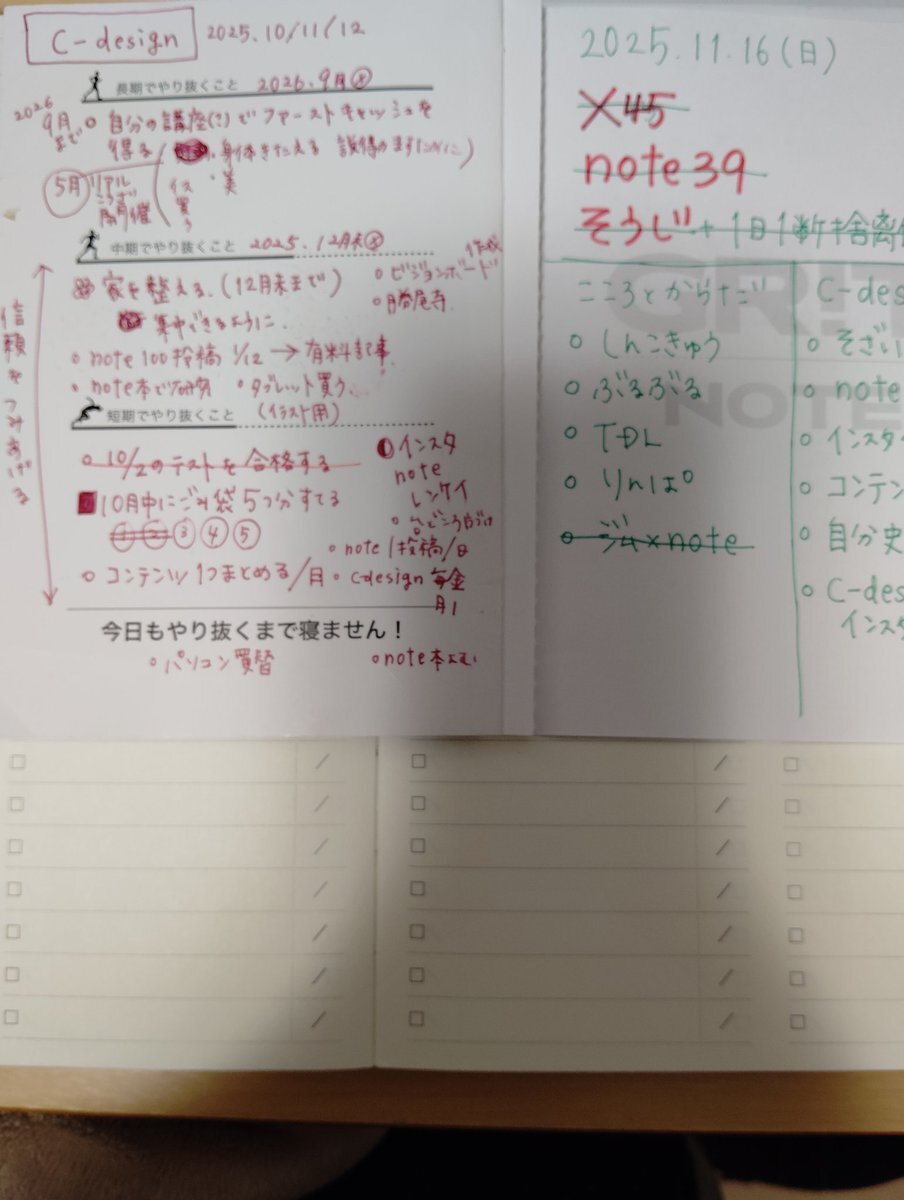 C-design 2025.10/11/12
長期でやり抜くこと 2026.9月末
2026
9月まで
○ 自分の講座(?)でファーストキャッシュを
得る(身体きたえる 説得のますために)
5月 リアル
こうざ
開催
イス
買う
・美
中期でやり抜くこと 2025.12月末
家を整える.(12月末まで)
集中できるように.
○ ビジョンボード
作成
○ 勝尾寺.
○ note 100投稿 1/12 → 有料記事.
○ note本で研究 ○ タブレット買う.
(イラスト用)
短期でやり抜くこと
信頼をつみあげる
○ 10/2のテストを合格する
10月中にごみ袋5つ分すてる
① ② ③ ④ ⑤
○ コンテンツ1つまとめる/月
インスタ
note
レンケイ
○ 台どころ片づけ
○ note 1投稿/日
○ c-design 毎金
月1
今日もやり抜くまで寝ません!
○ パソコン買替
○ note本よむ
2025.11.16(日)
X45
note 39
そうじ+1日1断捨離
GRIT
NOTE
こころとからだ
○ しんきゅう
○ ぶるぶる
○ TDL
○ りんぱ
○ ジム×note
C-des
○ そざい
○ note
○ インスタ
○ コンテン
○ 自分史
○ C-des
インスタ